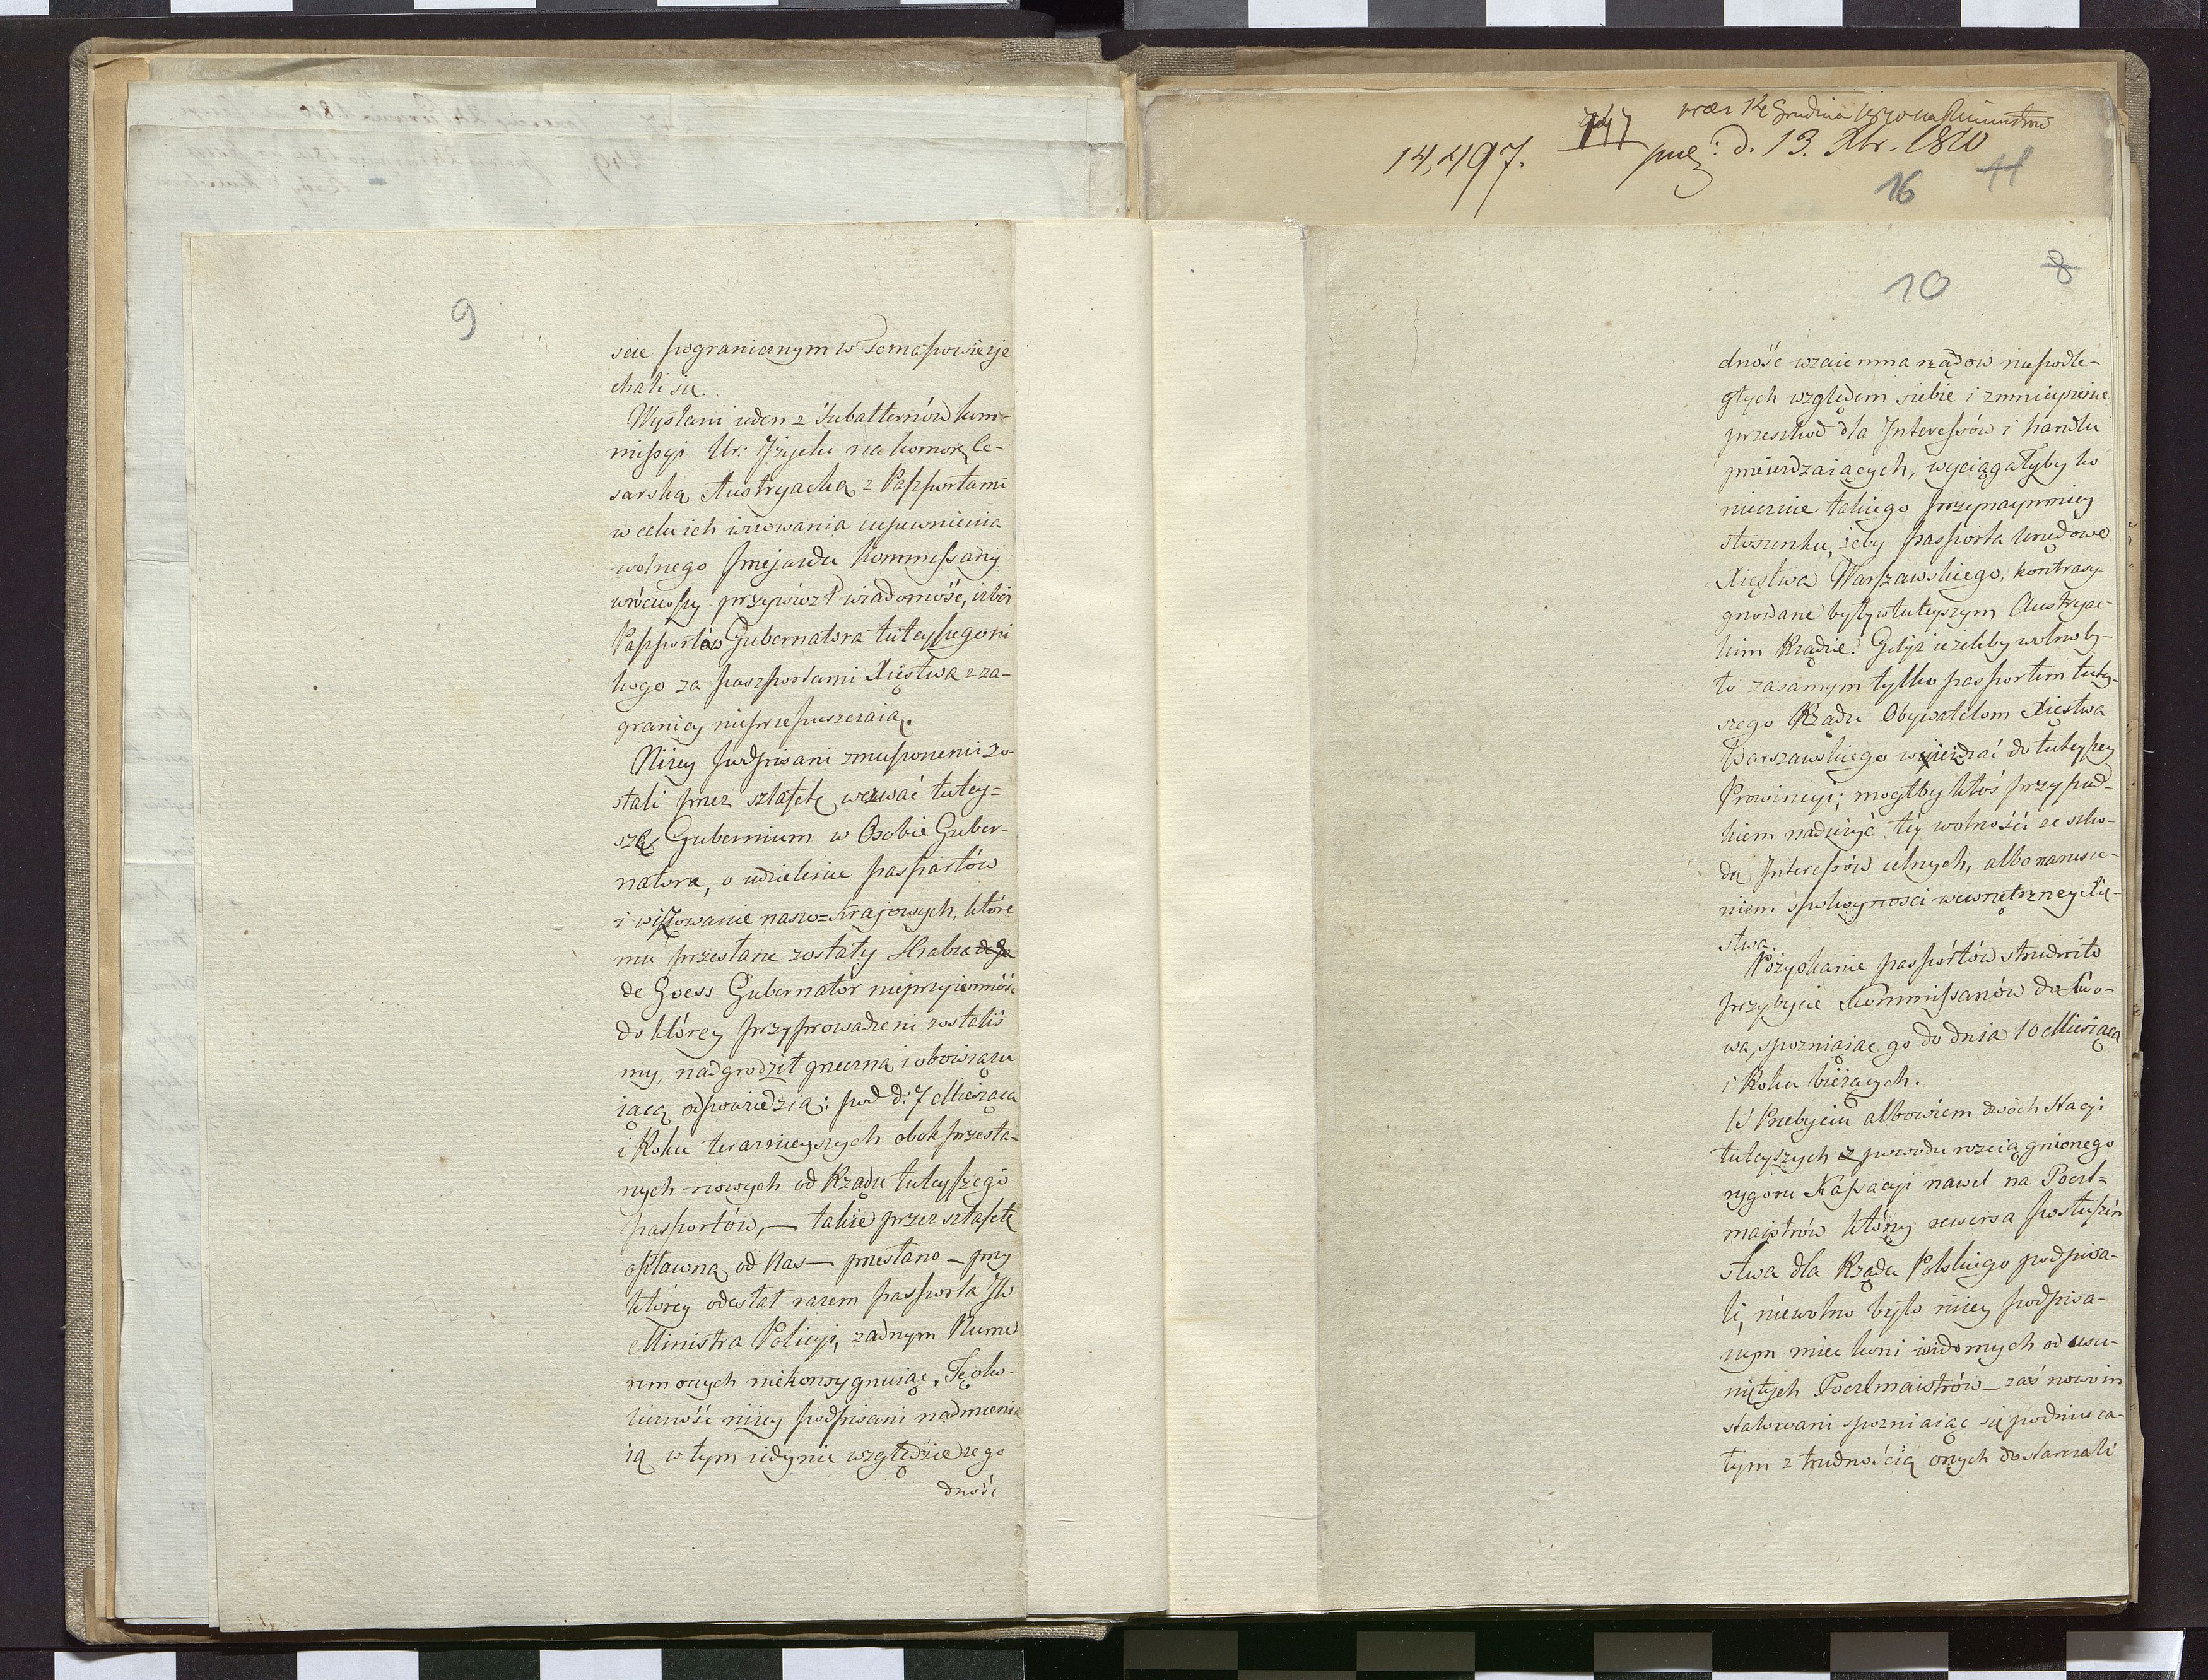 9
scie pogranicznym w Tomaszowie zje
chali się.
Wysłani ieden z Subalternów kom-
missyi Ur: Iżycki na komorę Ce-
sarską Austryacką z Paszportami
w celu ich wizowania i upewnienia
wolnego przejazdu Kommissarzy
wróciwszy przywiózł wiadomość, iż bez
Paszportów Gubernatora tuteyszego ni
kogo za paszportami Xięstwa z za-
granicy nieprzepuszczaią.
Niżey podpisani zmuszonemi zo-
stali przez sztafetę wezwać tutey=
sze Gubernium w Osobie Guber-
natora, o udzielenie paszportów
i wizowanie naszo=Krajowych, które
mu przesłane zostały Hrabia
de Goess Gubernator nieprzyiemność
do którey przyprowadzeni zostaliś
my, nadgrodził grzeczną i obowiązu
iącą odpowiedzią: pod d: 7 Miesiąca
i Roku teraznieyszych obok przesła-
nych nowych od Rządu tuteyszego
paszportów, — także przez sztafetę
opławną od Nas — przesłano — przy
którey odesłał razem paszporta JW
Ministra Policyi, żadnym Nume
rem onych niekonsygnuiąc, Tę oko-
liczność niżey podpisani nadmienia
ią w tym iedynie względzie że go
dność
14,497.
747
præs 14 Grudnia 1810 na Ministrow
præs: d. 13. Xbr. 1810
16 11
10 8
dność wzaiemna rządow niepodle-
głych względem siebie i zmnieyszenie
przeszkod dla Interessów i handlu
przeieżdzaiących, wyciągałyby ko
niecznie takiego przynaymniey
stosunku, żeby paszporta urzędowe
Xięstwa Warszawskiego, kontrasy-
gnowane były w tuteyszym Austryac-
kim Rządzie. Gdyż ieżeliby wolno by-
ło za samym tylko paszportem tutey-
szego Rządu Obywatelom Xięstwa
Warszawskiego wjeżdzać do tuteyszey
Prowincyi; mogłby ktoś przypad-
kiem nadużyć téy wolności ze szko-
dą Interessów celnych, albo narusze-
niem spokoyności wewnętrzney Xię-
stwa.
Pozyskanie paszportów utrudniło
przybycie Kommissarzów do Lwo-
wa, spozniaiąc go do dnia 10 Miesiąca
i Roku bieżących.
W Przebyciu albowiem dwóch Stacyi
tuteyszych z powodu rozciągnionego
rygoru Kassacyi nawet na Poczt=
maistrów którzy rewersa posłuszeń
stwa dla Rządu Polskiego podpisa-
li, niewolno było niżey podpisa-
nym mieć koni wiadomych od usu-
niętych Pocztmaistrów — zaś nowo in
stalowani spozniaiąc się podniesca-
tym z trudnością onych dostarczali